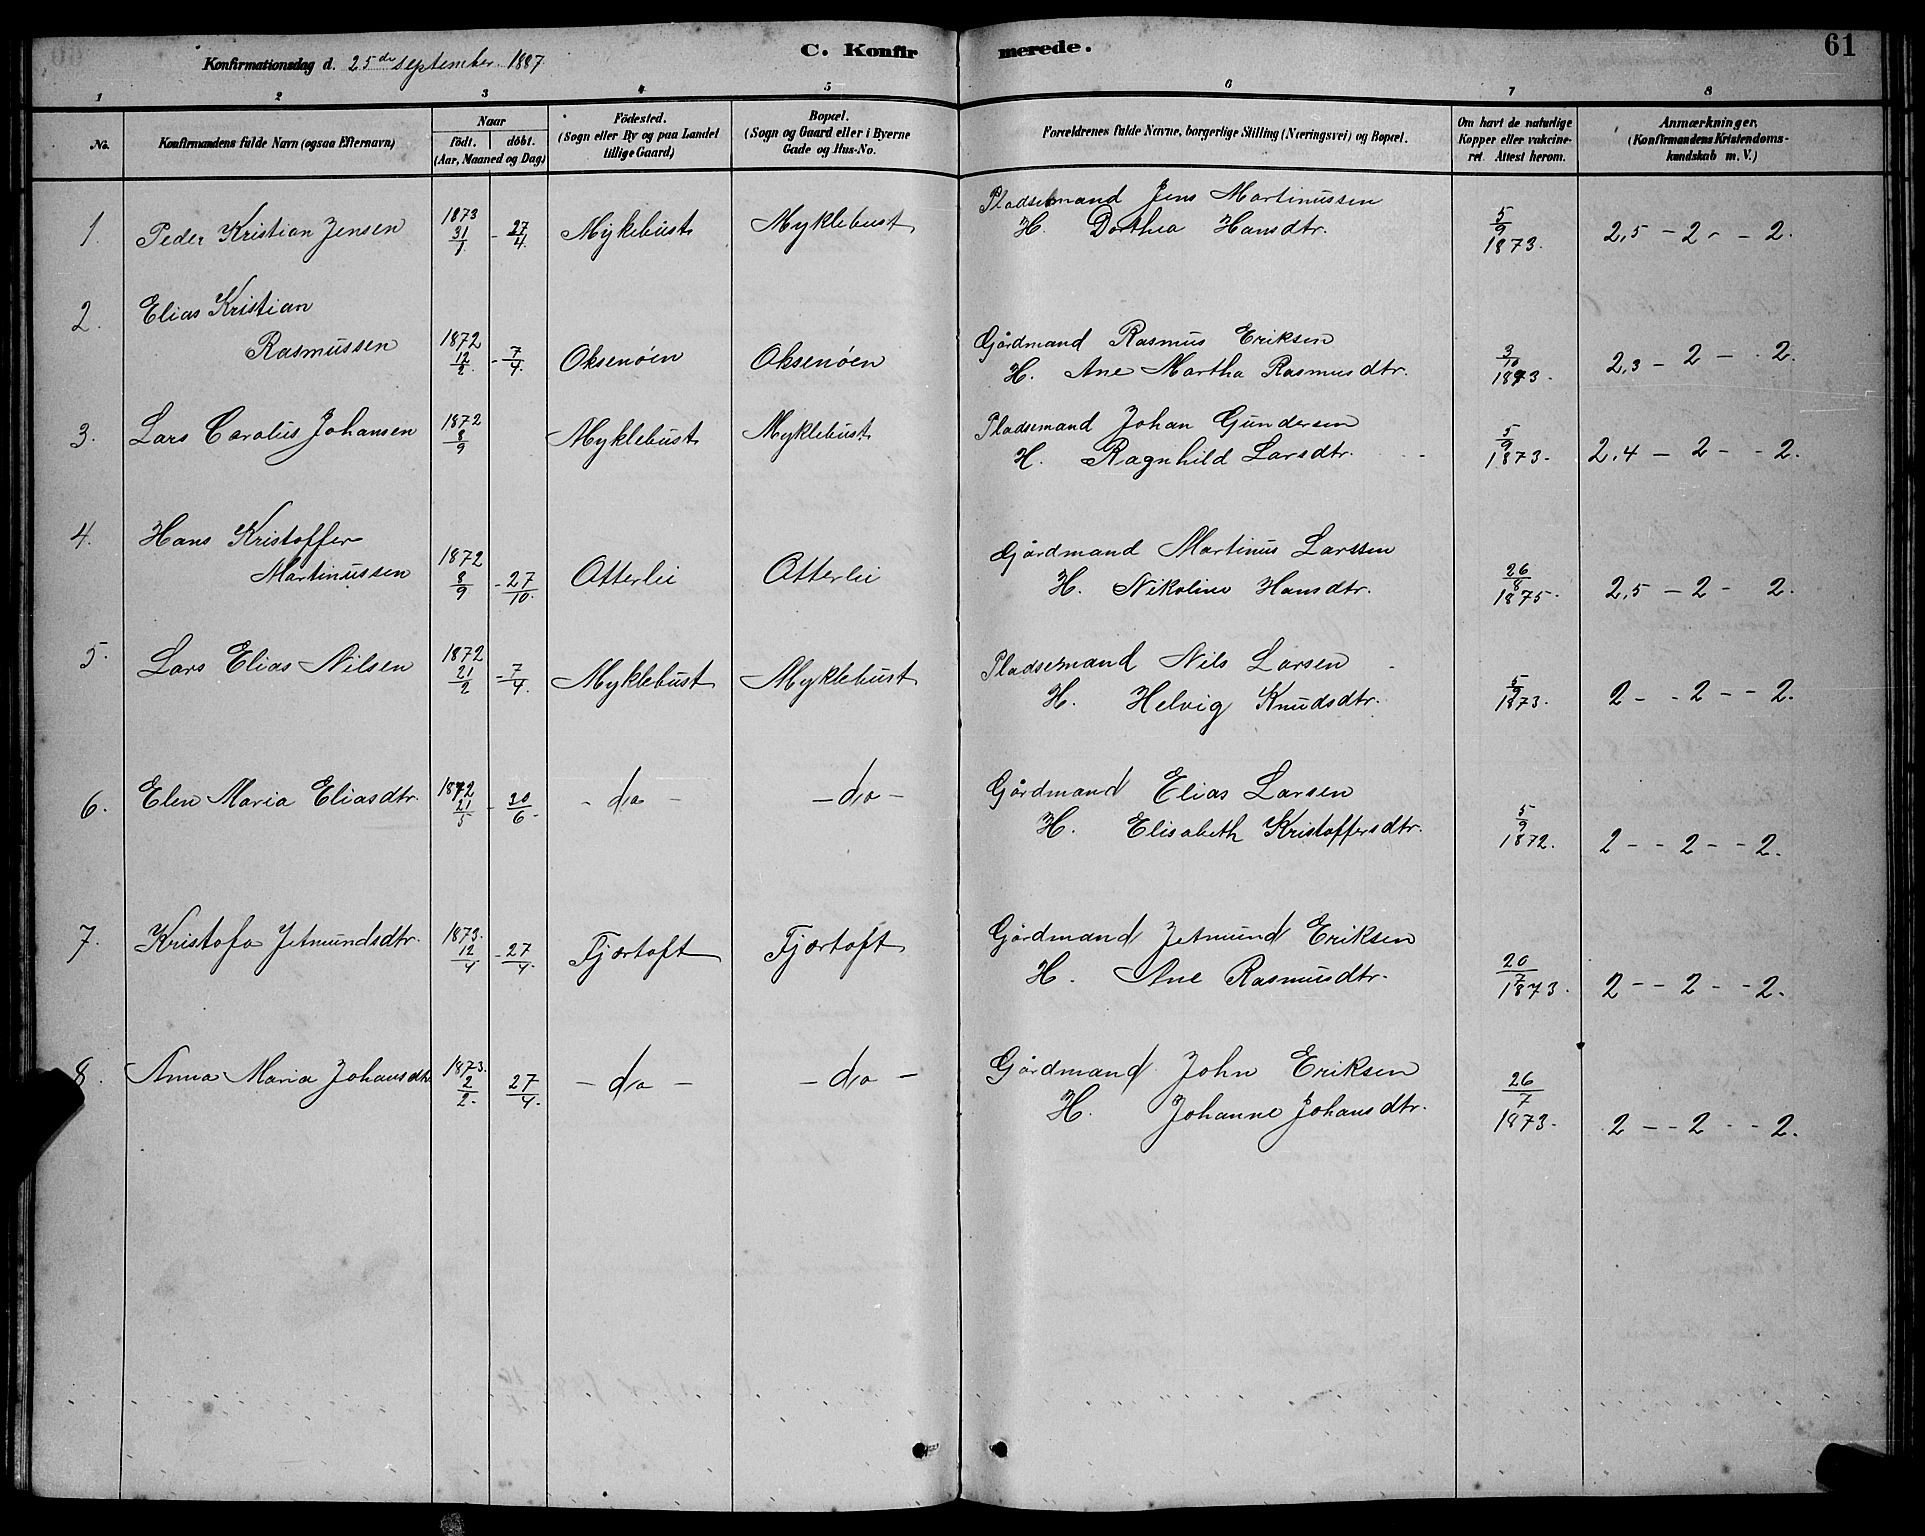 C. Konfirmerede.
61
Konfirmationsdag d. 25de september 1887
1 2 3 4 5 6 7 8
No.
Konfirmandens fulde Navn (ogsaa Efternavn)
Naar
født. døbt.
(Aar, Maaned og Dag)
Fødested.
(Sogn eller By og paa Landet
tillige Gaard)
Bopæl.
(Sogn og Gaard eller i Byerne
Gade og Hus-No.
Forældrenes fulde Navne, borgerlige Stilling (Næringsvei) og Bopæl.
Om havt de naturlige
Kopper eller vakcine-
ret. Attest herom.
Anmærkninger,
(Konfirmandens Kristendoms-
kundskab m. V.)
1. Peder Kristian Jensen 1873 31/1 - 27/4 Myklebust Myklebust Pladsemand Jens Martinussen
H. Dorthea Hansdtr. 5/9 1873. 2,5 - 2 - - 2.
2. Elias Kristian
Rasmussen 1872 12/2 - 7/4 Oksenøen Oksenøen Gårdmand Rasmus Eriksen
H. Ane Martha Rasmusdtr. 3/10 1873. 2,3 - 2 - - 2.
3. Lars Carolus Johansen 1872 8/9 Myklebust Myklebust Pladsemand Johan Gundersen
H. Ragnhild Larsdtr. 5/9 1873. 2,4 - 2 - - 2.
4. Hans Kristoffer
Martinussen 1872 8/9 - 27/10 Otterlei Otterlei Gårdmand Martinus Larssen
H. Nikoline Hansdtr. 26/8 1875. 2,5 - 2 - 2.
5. Lars Elias Nilsen 1872 21/2 - 7/4 Myklebust Myklebust Pladsemand Nils Larsen
H. Helvig Knudsdtr. 5/9 1873. 2 - - 2 - - 2.
6. Elen Maria Eliasdtr. 1872 21/5 - 30/6 - do - - do - Gårdmand Elias Larsen
H. Elisabeth Kristoffersdtr. 5/9 1872. 2 - - 2 - - 2.
7. Kristofa Jetmundsdtr. 1873. 12/4 - 27/4 Fjørtoft Fjørtoft Gårdmand Jetmund Eriksen
H. Ane Rasmusdtr. 20/7 1873. 2 - - 2 - - 2.
8. Anna Maria Johansdtr 1873. 2/2. 27/4. - do - - do - Gårdmand John Eriksen
H. Johanne Johansdtr. 26/7 1873. 2 - - 2 - - 2.